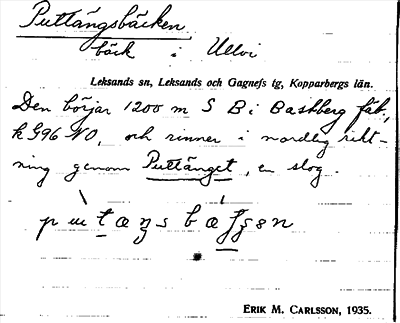 Puttängsbäcken
bäck i Ullvi
Leksands sn, Leksands och Gagnefs tg, Kopparbergs län.
Den börjar 1200 m S B i Bastberg fäb,
k 996 NO, och rinner i nordlig rikt-
ning genom Puttänget, en slog.
ERIK M. CARLSSON, 1935.